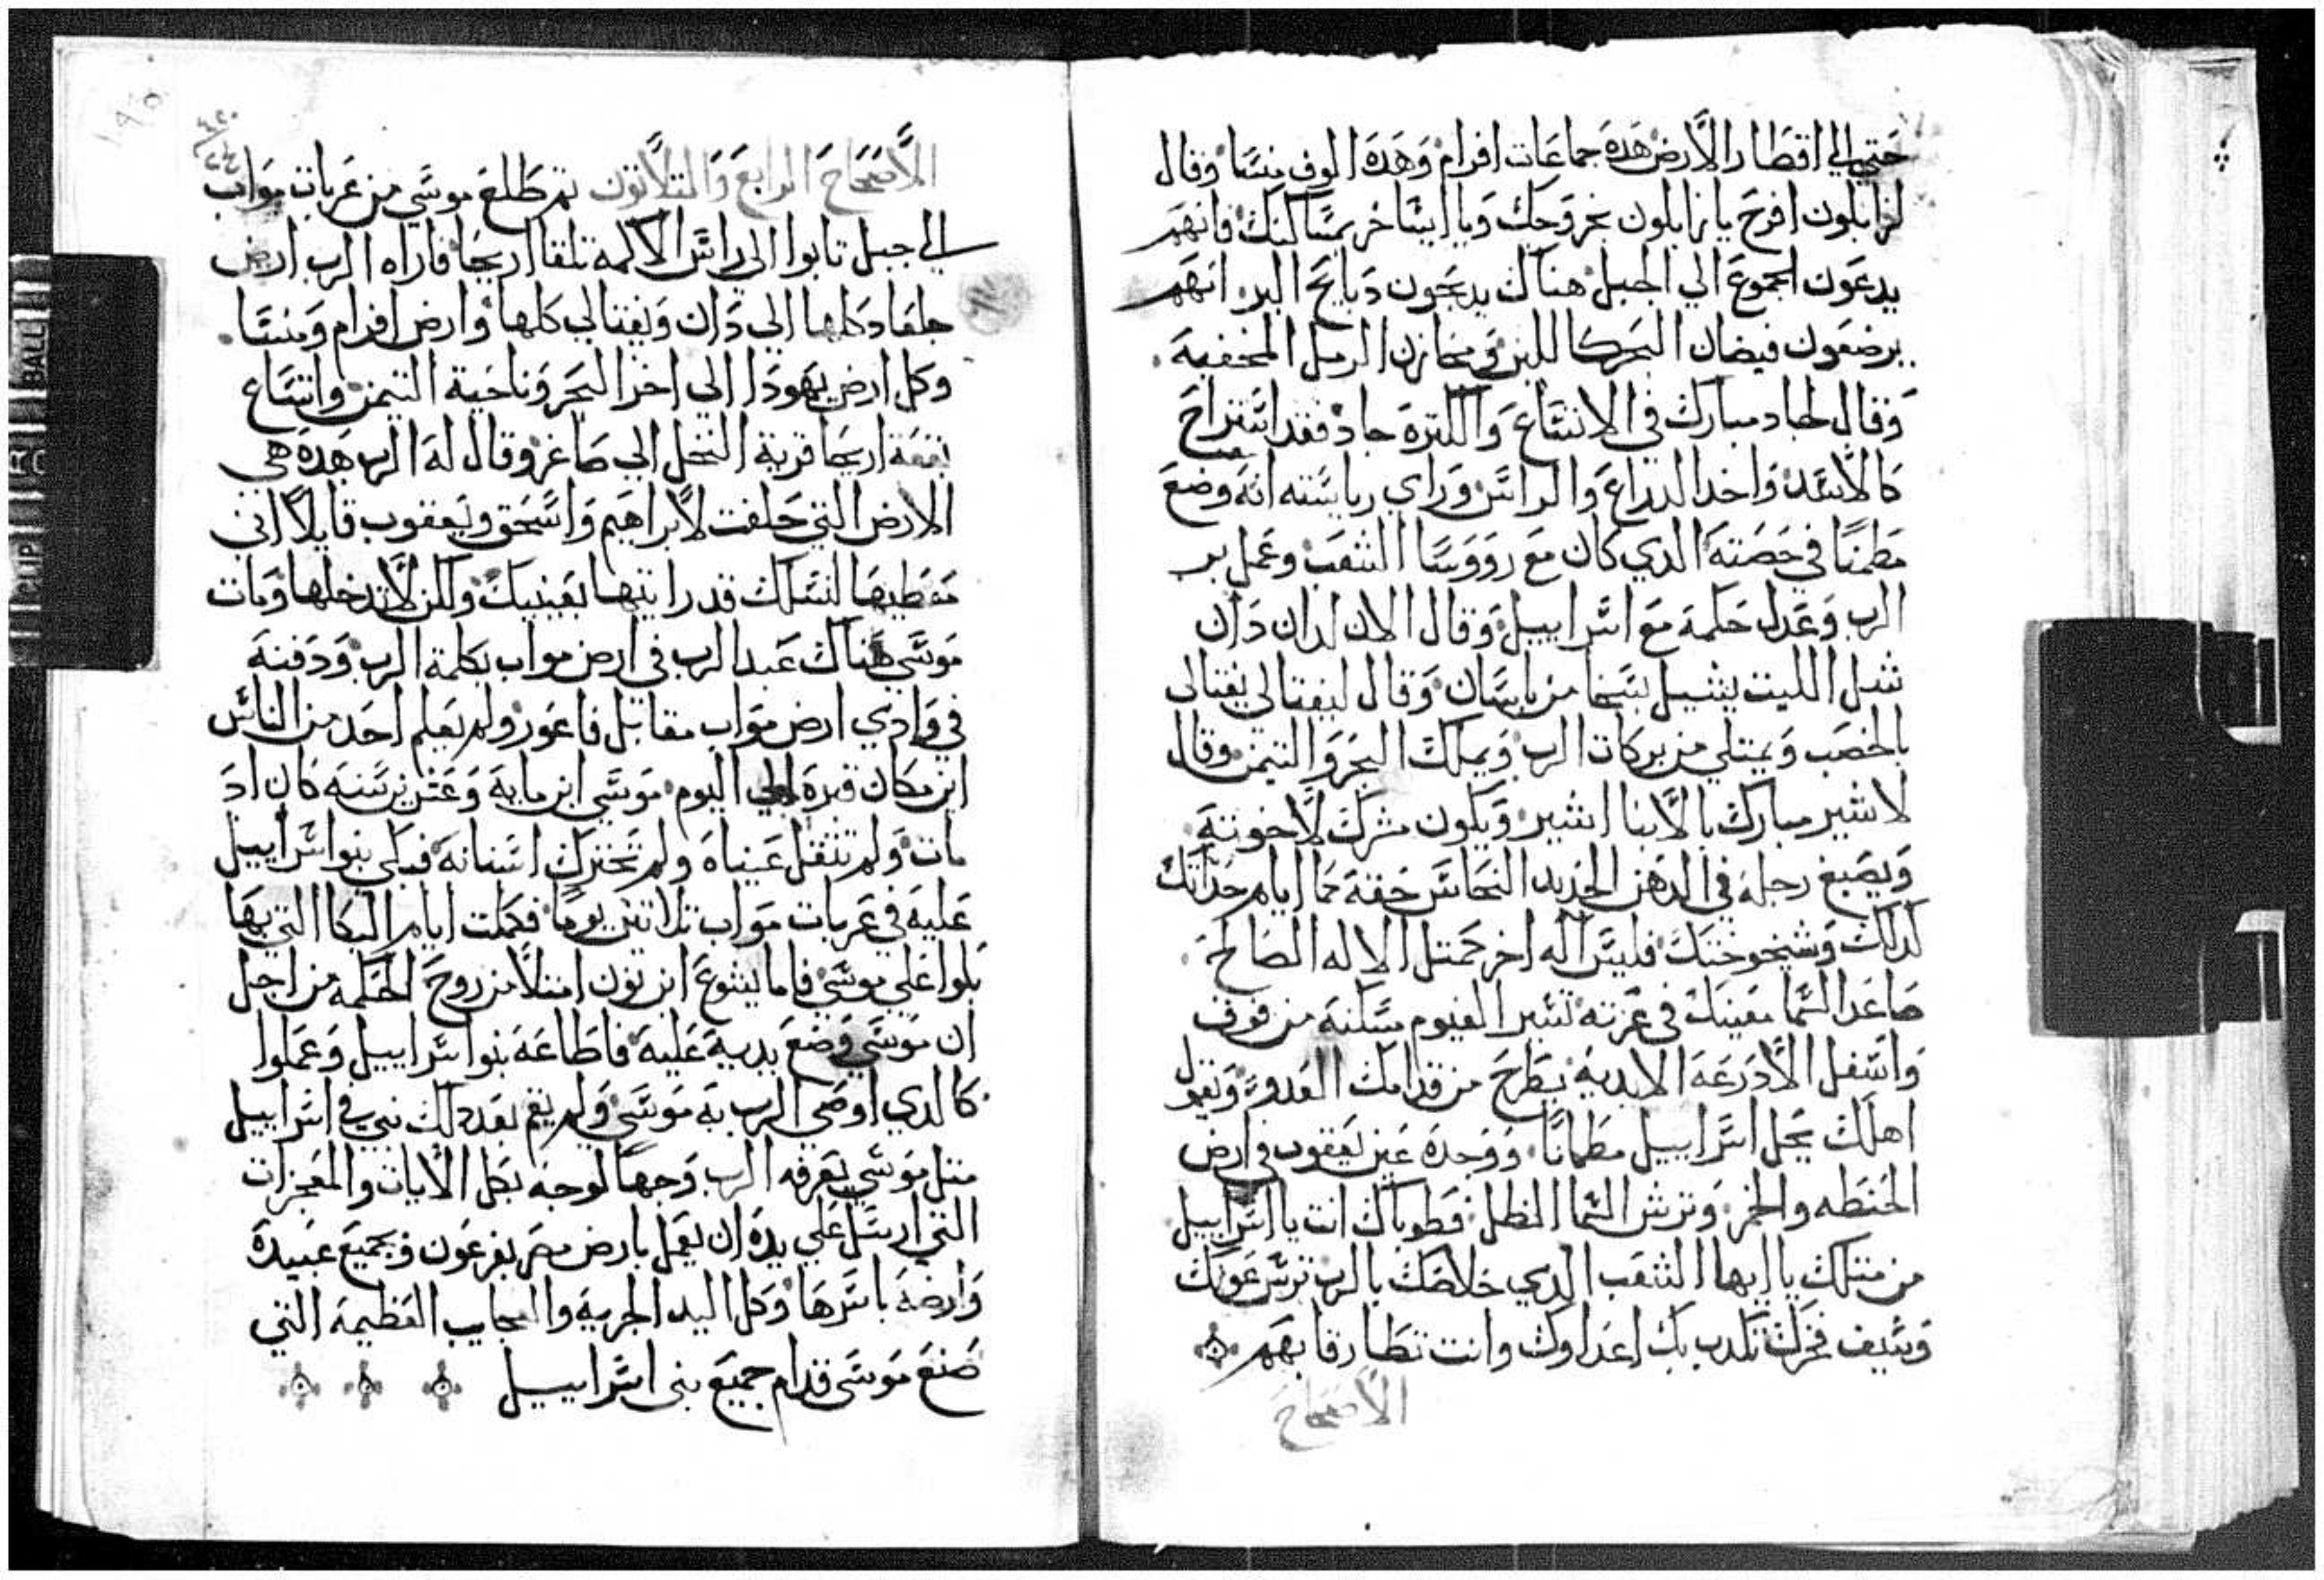 حتي الي اقطار الارض هده جماعات افرام وهده الوف منسا وقال
لزابلون افرح يا زابلون بخروجك ويا ايساخر بمساكنك فانهم
يدعون الجموع الي الجبل هناك يدبحون دبايح البر انهم
يرضعون فيضان البحر كاللبن في مخازن الرمل المخفيه
وقال لجاد مبارك في الاتساع والكتره جاد فقد استراح
كالاسد واخد الدراع والراس وراي رياسته انه وضع
مطمنا في حصته الدي كان مع رووسا الشعب وعمل بر
الرب وعدل حكمه مع اسراييل وقال الان لدان دان
شبل الليت يشيل بسخا من باسان وقال ليفتالي يفتالي
بالخصب ويمتلي من بركات الرب ويملك البحر والتيمن وقال
لاشير مبارك بالابنا اشير ويكون مشرك لاخوته
ويصبغ رجله في الدهن الحديد النحاس حقه كما ايام حداتك
كدلك وشيخوختك فليس اله اخر كمتل الاله الصالح
صاعد السما معينك في عزته تسير الغيوم مسكنه من فوق
واسفل الادرعه الابديه يطرح من قدامك العدو ويقول
اهلك يحل اسراييل مطمانا ووحده عين يعقوب في ارض
الحنطه والخمر وترش السما الطل فطوباك انت يا اسراييل
من متلك يا ايها الشعب الدي خلاصك بالرب ترس عونك
وسيف فخرك تكدب بك اعداوك وانت تطا رقابهم
الاصحاح
الاصحاح الرابع والتلاتون تم طلع موسي من عربات مواب
الي جبل نابوا الي راس الاكمه تلقا اريحا فاراه الرب ارض
جلعاد كلها الي دان ويفتالي كلها وارض افرام ومنسا
وكل ارض يهودا الي اخر البحر وناحية التيمن واتساع
بقعة اريحا قرية النخل الي صاغر وقال له الرب هده هي
الارض التي حلفت لابراهيم واسحق ويعقوب قايلا اني
معطيها لنسلك قد رايتها بعينيك ولكن لا تدخلها ومات
موسي هناك عبد الرب في ارض مواب بكلمة الرب ودفنه
في وادي ارض مواب مقابل فاعور ولم يعلم احد من الناس
اين مكان قبره الي اليوم موسي ابن مايه وعشرين سنه كان اد
مات ولم تتقل عيناه ولم تحترك اسنانه فبكي بنوا اسراييل
عليه في عربات مواب تلاتين يوما فكملت ايام البكا التي بها
بكوا علي موسي فاما يشوع ابن نون امتلا من روح الحكمه من اجل
ان موسي وضع يديه عليه فاطاعه بنوا اسراييل وعملوا
كالدي اوصي الرب به موسي ولم يقم بعد دلك نبي في اسراييل
متل موسي يعرفه الرب وجها لوجه بكل الايات والمعجزات
التي ارسل علي يده ان يعمل بارض مصر بفرعون وبجميع عبيده
وارضه باسرها وكل اليد الجريه والعجايب العظيمه التي
صنع موسي قدام جميع بني اسراييل